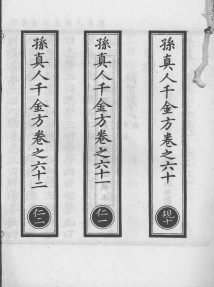 孫真人千金方卷之六十
現十
孫真人千金方卷之六十一
仁一
孫真人千金方卷之六十二
仁二